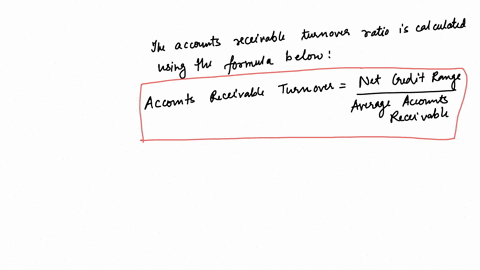 The accounts receivable turnover ratio is calculated
using the formula below:
Accounts Receivable Turnover = Net Credit Range
Average Accounts
Receivable